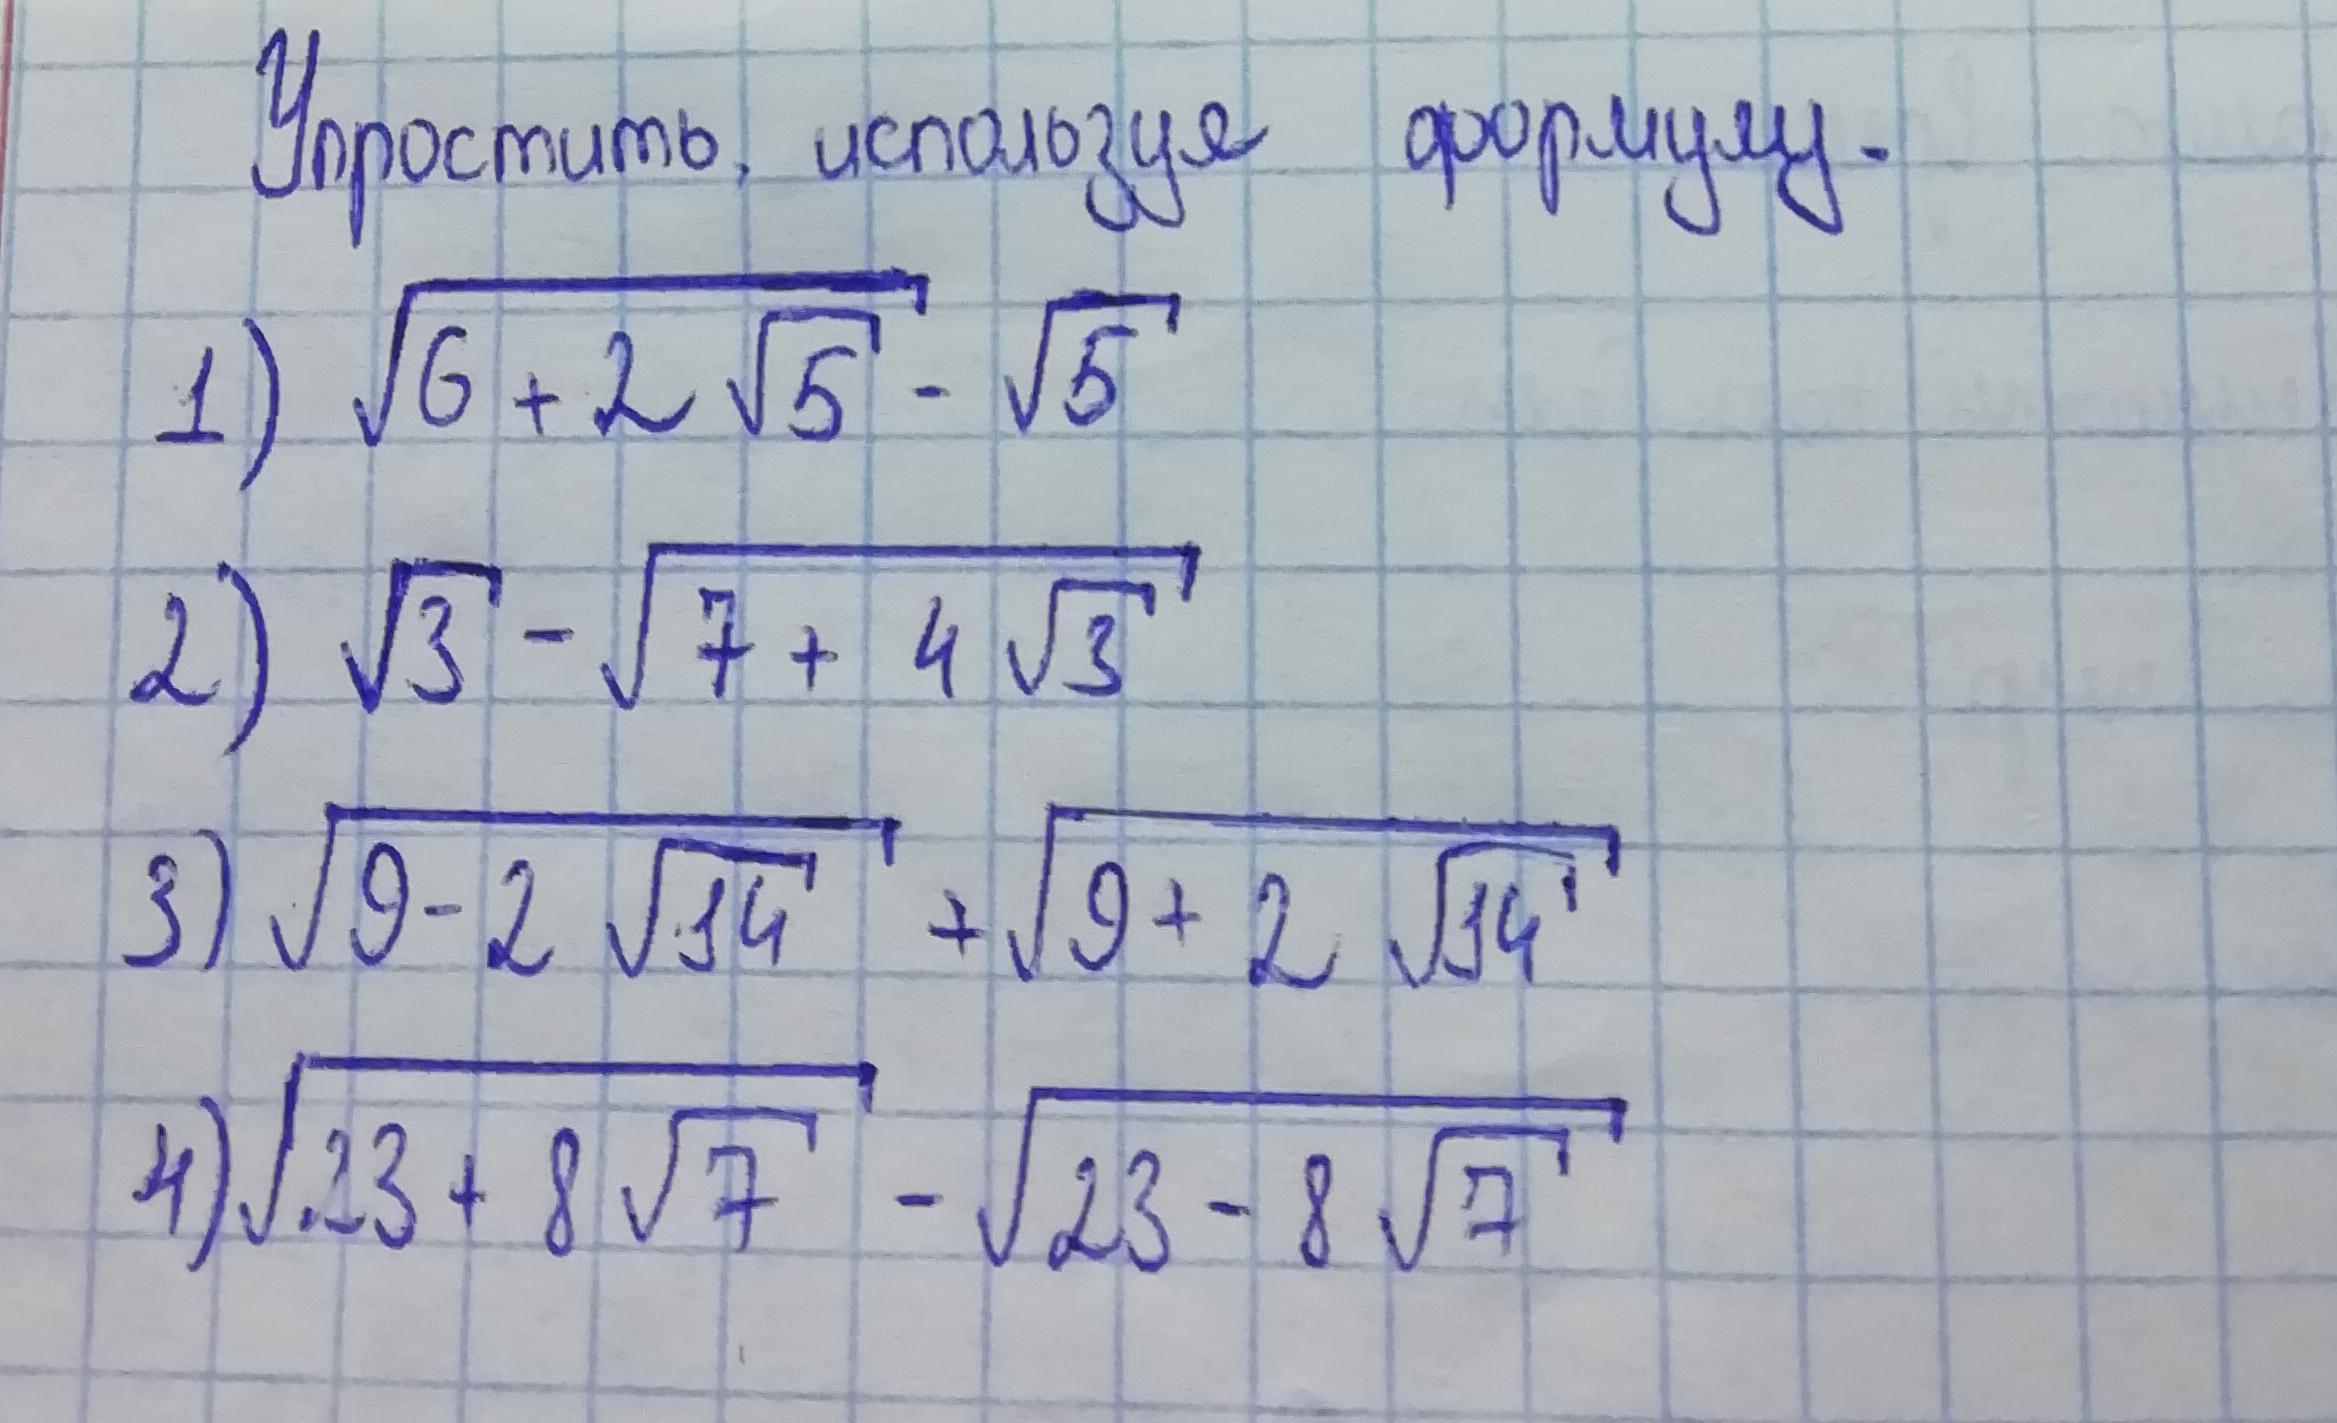 Упростить, используя формулу.
1) √(6 + 2√5) - √5
2) √3 - √(7 + 4√3)
3) √(9 - 2√14) + √(9 + 2√14)
4) √(23 + 8√7) - √(23 - 8√7)